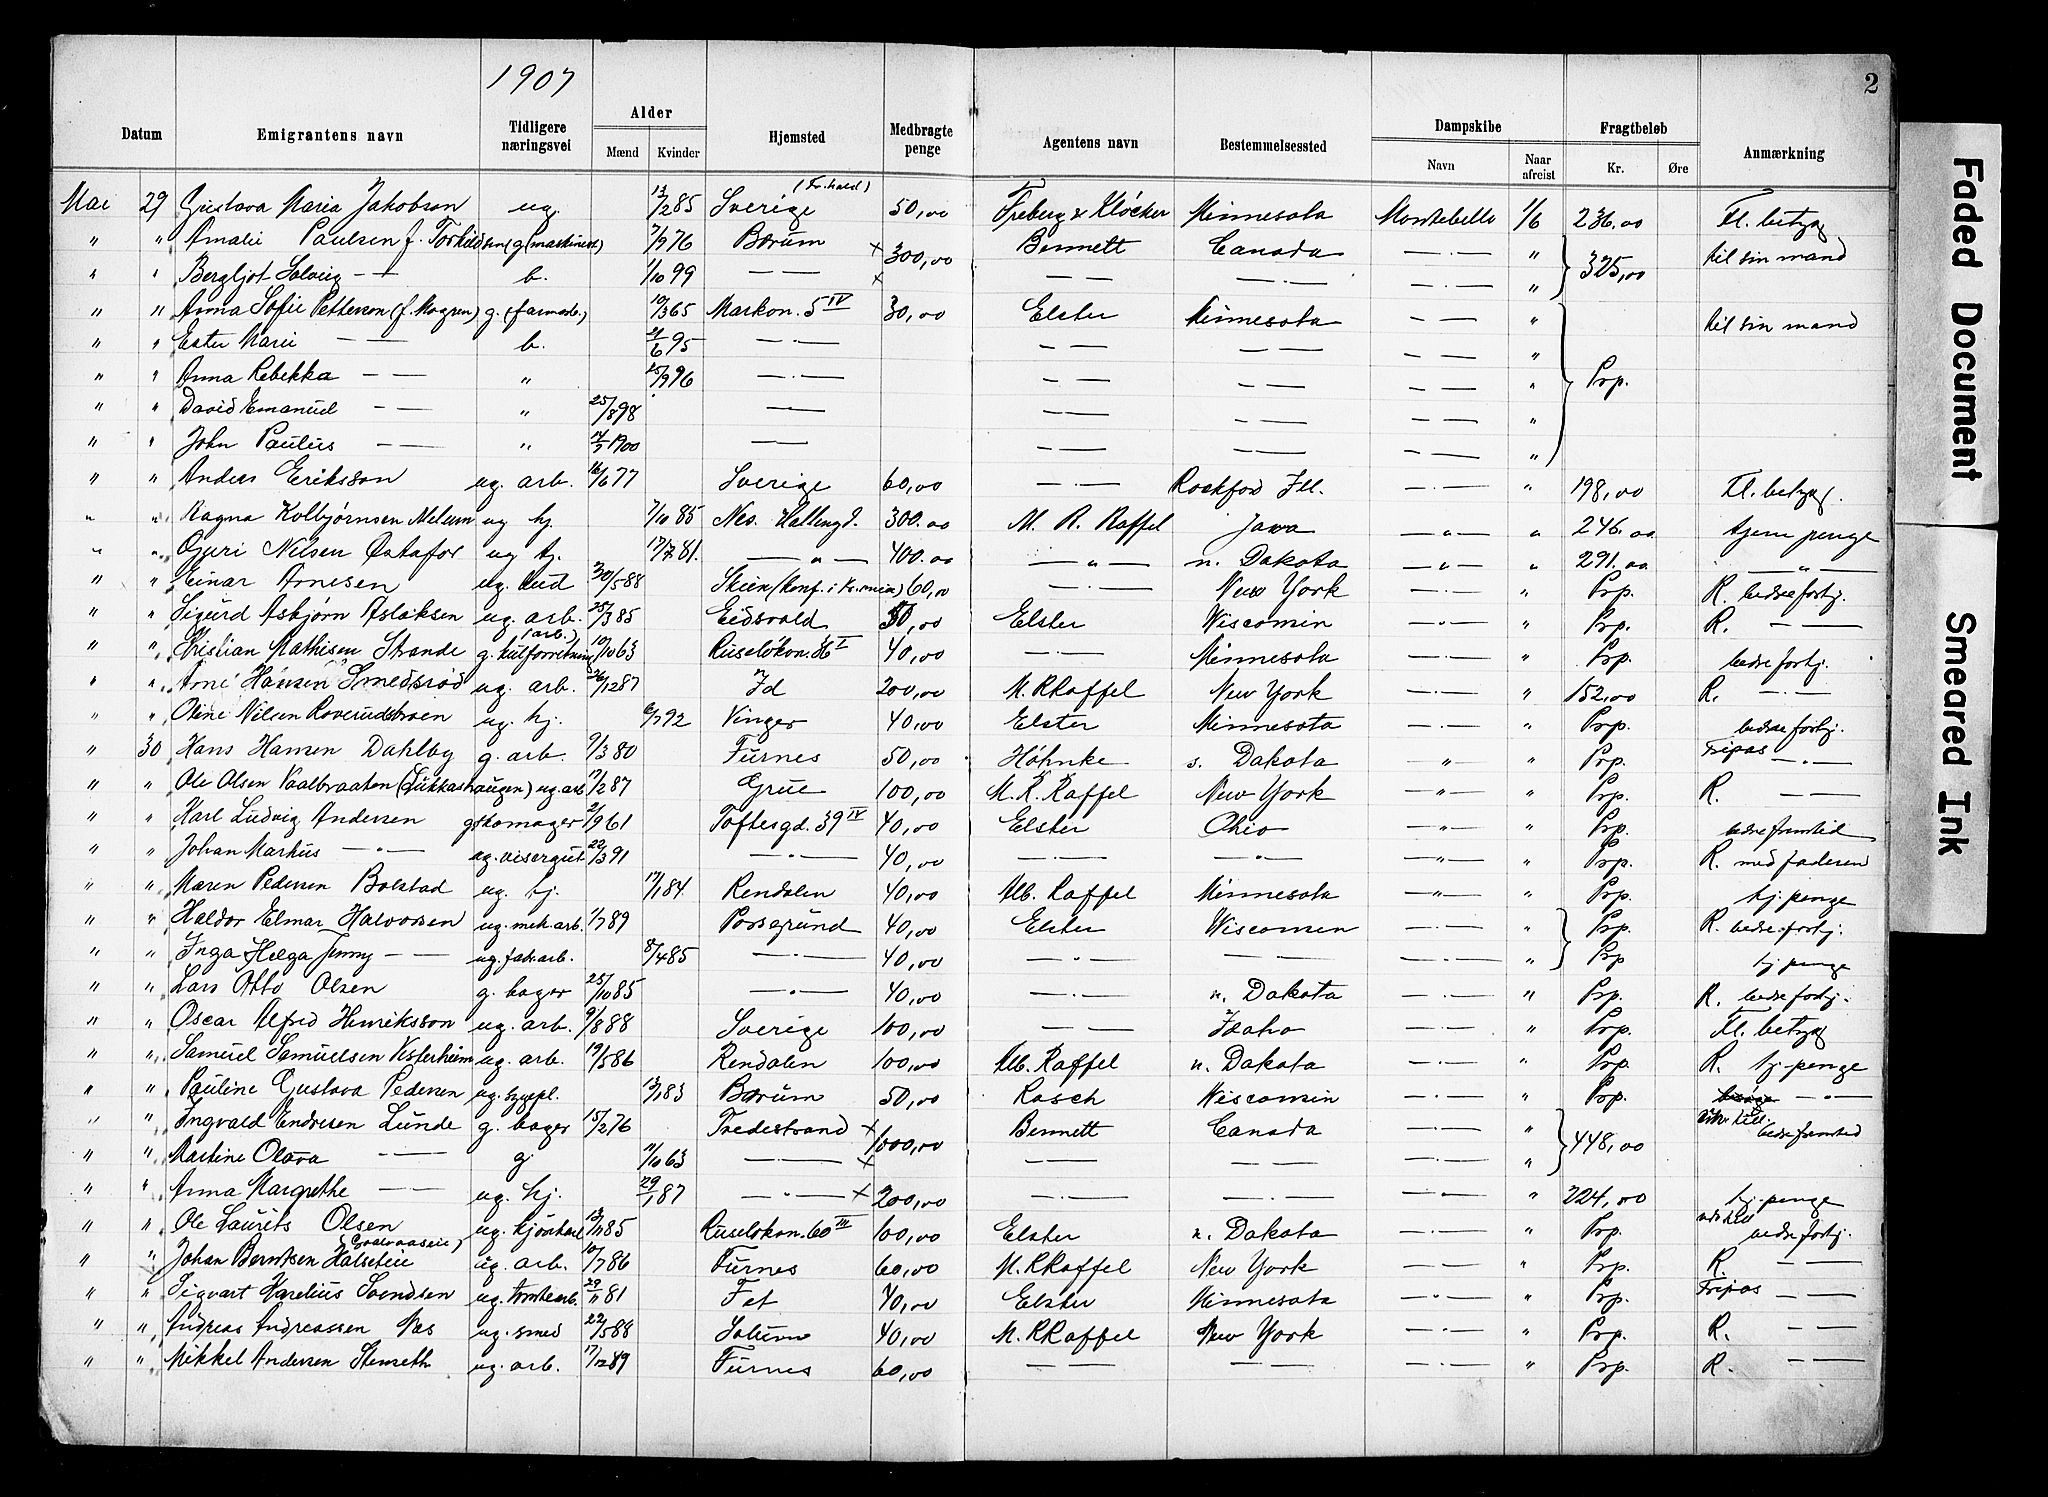 1907
2
Datum | Emigrantens navn | Tidligere næringsvei | Alder Mænd | Kvinder | Hjemsted | Medbragte penge | Agentens navn | Bestemmelsessted | Dampskibe Navn | Naar afreist | Fragtbeløb Kr. | Øre | Anmærkning
Mai 29 Gustava Maria Jakobson ug. 13/2 85 Sverige (Fr.hald) 50,00 Freberg & Kløcker Minnesota Montebello 1/6 236.00 Fl. betyg
" " Amalie Paulsen f. Torkildsen g (maskinist) 7/9 76 Bærum × 300,00 Bennett Canada — . — " 325,00 til sin mand
" " Bergljot Solveig — — b. 1/10 99 — — × — — — . — — . — "
" " Anna Sofie Petterson (f. Mogren) g. (farmarb.) 10/3 65 Markvn. 5 IV 30,00 Elster Minnesota — . — " til sin mand
" " Ester Marie — — b. 21/6 95 — . — — — — — — — "
" " Anna Rebekka — — " 25/9 96 — . — — — — — — — " Prp.
" " David Emanuel — — " 25/8 98 — — — — — — — — "
" " John Paulus — — " 14/3 1900 — — — — — — — — "
" " Anders Eriksson ug. arb. 16/6 77 Sverige 60,00 — . — Rockford Ill. — . — " 198,00 Fl. betyg.
" " Ragna Kolbjørnsen Melum ug hj. 7/10 85 Nes. Hallingd. 300.00 M. R. Raffel Jowa — " — " 246.00 tjene penge
" " Guri Nilsen Østafor ug tj. 17/7 81. — " — 400.00 — " — n. Dakota — " — " 291.00 — " —
" " Einar Arnesen ug. bud 30/5 88 Skien (konf. i Kr.ania) 60,00 — . — New York — . — " Prp. R. bedre fortj.
" " Sigurd Asbjørn Aslaksen ug. arb. 25/3 85 Eidsvold 50,00 Elster Wisconsin — . — " Prp. R. — —
" " Kristian Mathisen Strande g. kulforretning (arb.) 10/10 63 Ruseløkvn. 36 I 40,00 — . — Minnesota — . — " Prp. bedre fortj.
" " Arne Hansen Smedsrød ug. arb. 26/12 87 Id 200,00 M. R Raffel New York — . — " 152,00 R. — . —
" " Oline Nilsen Roverudsbroen ug. hj. 6/7 92 Vinger 40,00 Elster Minnesota — . — " Prp. bedre fortj.
" 30 Hans Hansen Dahlby g. arb. 9/3 80 Furnes 50,00 Høhnke s. Dakota — " — " Prp. Fripas — . —
" " Ole Olsen Vaalbraaten (Lukkashaugen) ug. arb 17/2 87 Grue 100,00 M. R. Raffel New York — " — " Prp. R. — —
" " Karl Ludvig Andersen g skomager 2/9 61 Toftesgd. 39 IV 40,00 Elster Ohio — " — " Prp. bedre fremtid
" " Johan Markus — " — ug. visergut 22/3 91 — " — 40,00 — — — " — — " — " Prp. R. med faderen
" " Maren Pedersen Bolstad ug. hj. 17/1 84. Rendalen 40,00 Alb. Raffel Minnesota — " — " Prp. tj. penge
" " Haldor Elmar Halvorsen ug. mek. arb. 1/7 89 Porsgrund 40,00 Elster Wisconsin — . — " Prp. R. bedre fortj.
" " Inga Helga Jenny — — ug. fab. arb. 8/4 85 — . — 40,00 — — — — — . — " Prp tj. penge
" " Lars Otto Olsen g. bager 25/10 85 — . — 40,00 — . — n. Dakota — . — " Prp. R. bedre fortj.
" " Oscar Alfred Henriksson ug. arb. 9/8 88 Sverige 100,00 — — Idaho — . — " Prp. Fl. betyg
" " Samuel Samuelsen Vesterheim ug. arb. 19/5 86 Rendalen 100,00 Alb. Raffel n. Dakota — . — " Prp. R. tj. penge
" " Pauline Gustava Pedersen ug. sypl. 13/1 83 Bærum 50,00 Rasch Wisconsin — . — " Prp. — " —
" " Ingvald Endresen Lunde g. bager 15/2 76 Tvedestrand × 1000,00 Bennett Canada — . — " 448,00 bedre fremtid
" " Martine Olava g 11/10 63 — . — × — — — — — . — "
" " Anna Margrethe — — ug. hj. 29/1 87 — " — × 200,00 — . — — . — — . — " 224,00 tj. penge
" " Ole Laurits Olsen ug. 13/11 85 Ruseløkvn. 60 III 100,00 Elster n. Dakota — . — " Prp. bedre fortj.
" " Johan Berntsen Halselie ug. arb. 10/7 86 Furnes 60,00 M. R Raffel New York — . — " Prp. R. — —
" " Sigvart Karelius Svendsen ug. tomtearb. 29/11 81 Fet 40,00 Elster Minnesota — . — " Prp. Fripas — —
" " Andreas Andreassen Næs ug. smed 22/5 88 Solum 40,00 M. R Raffel New York — . — " Prp. R. — —
" " Mikkel Andersen Stenseth ug. arb. 17/12 89 Furnes 60,00 — — — — — . — " Prp. R. — —
Faded Document
Smeared Ink